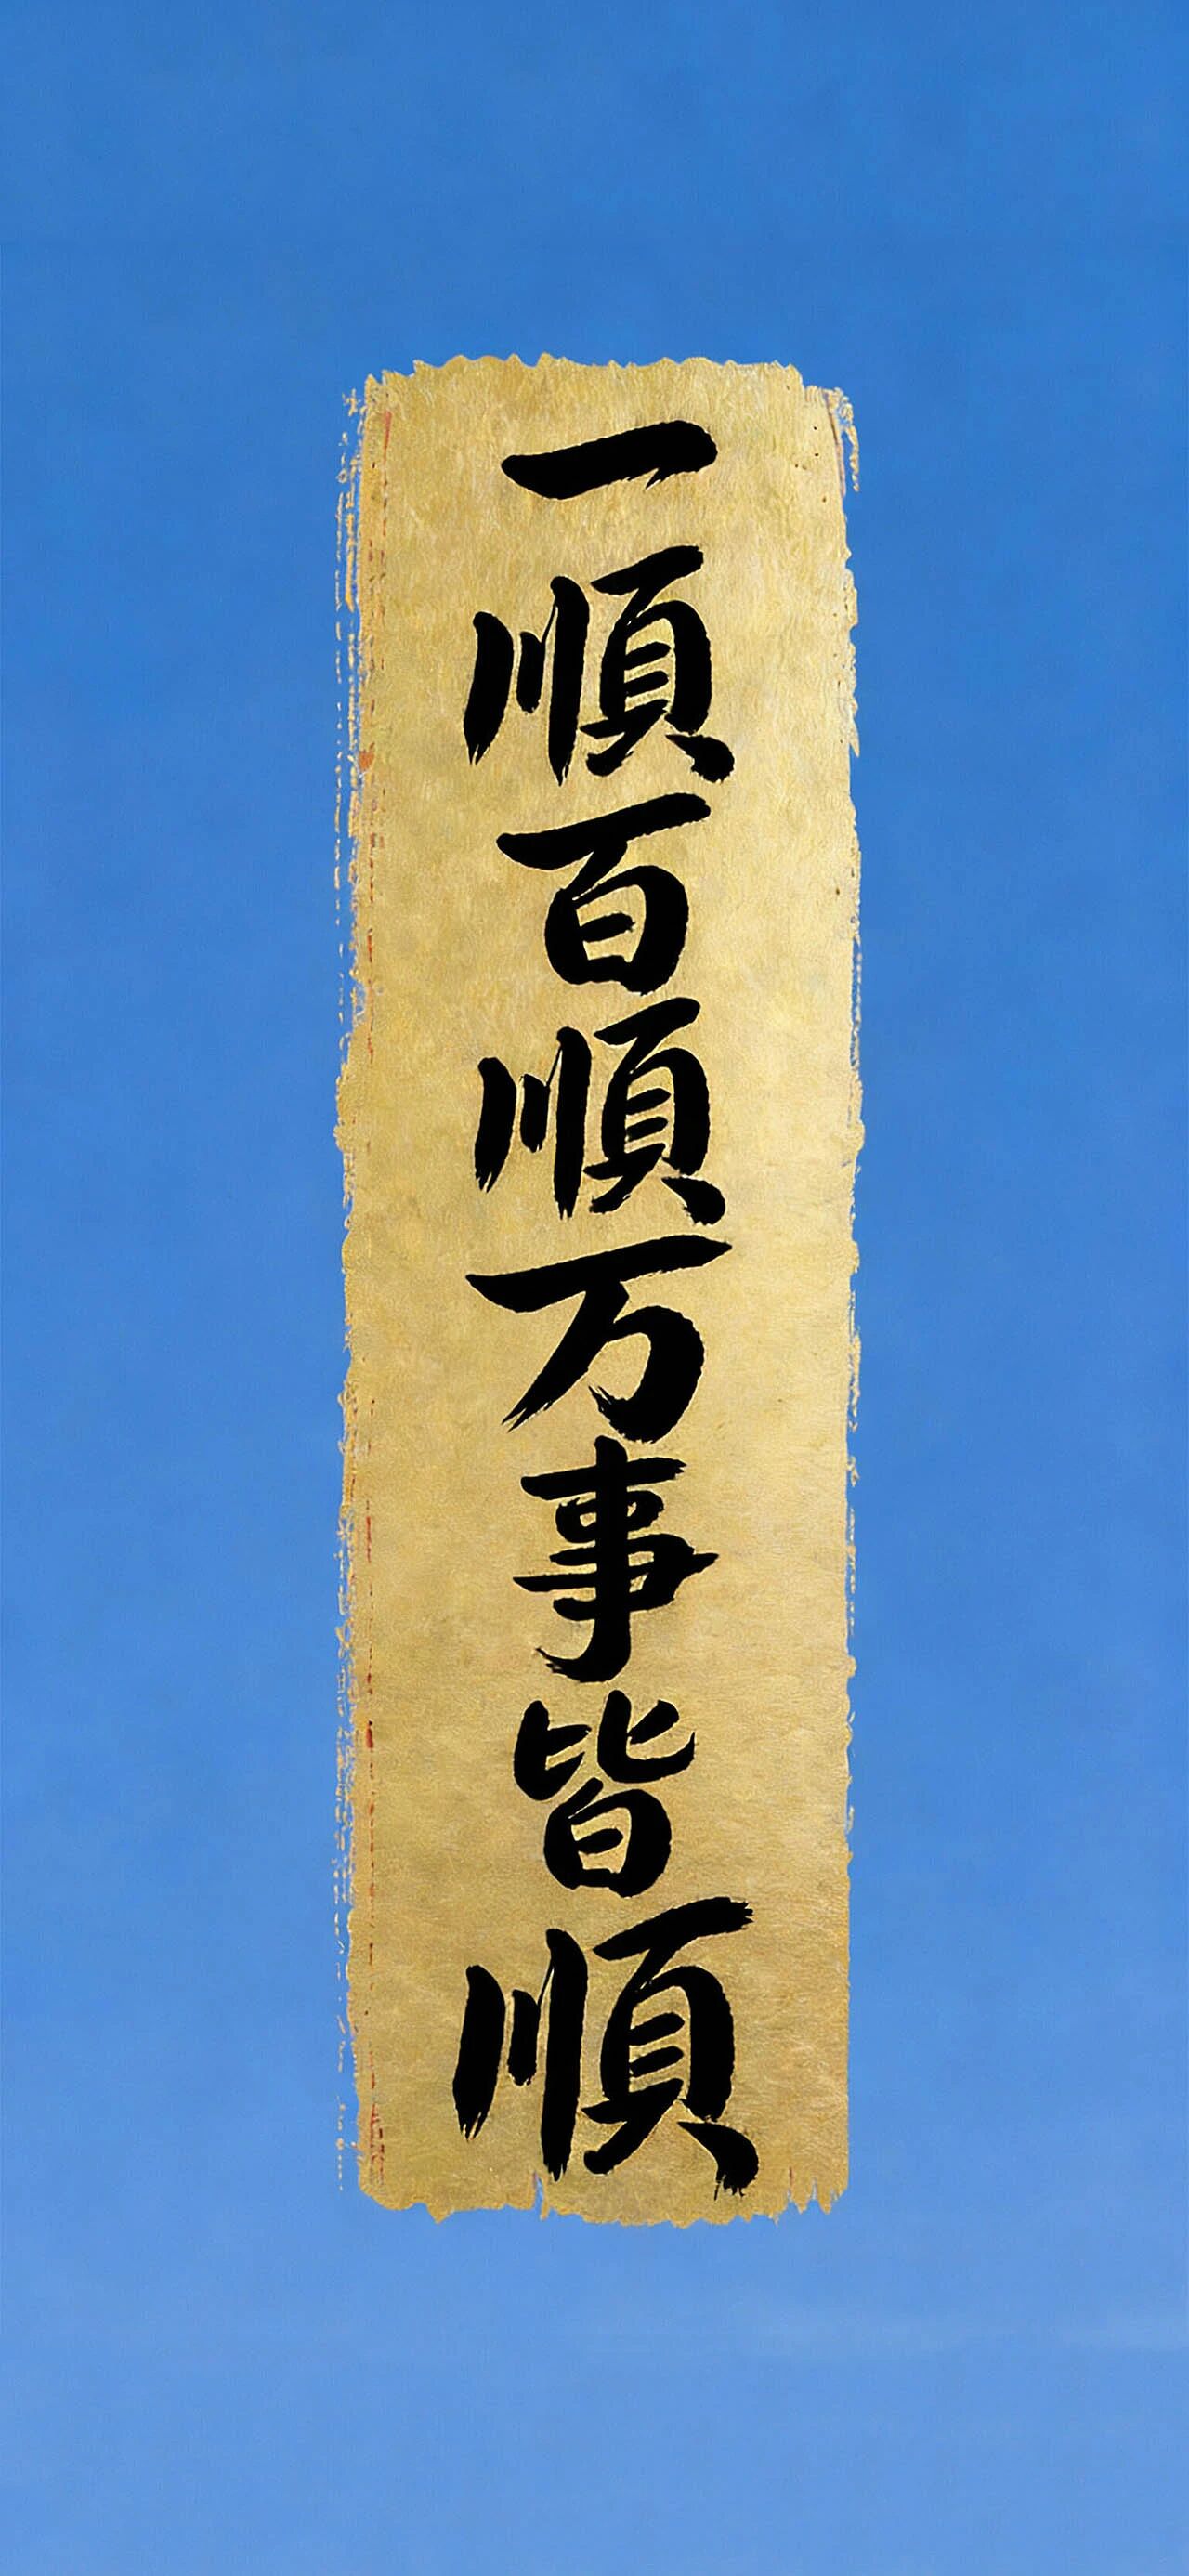 一順百順万事皆順